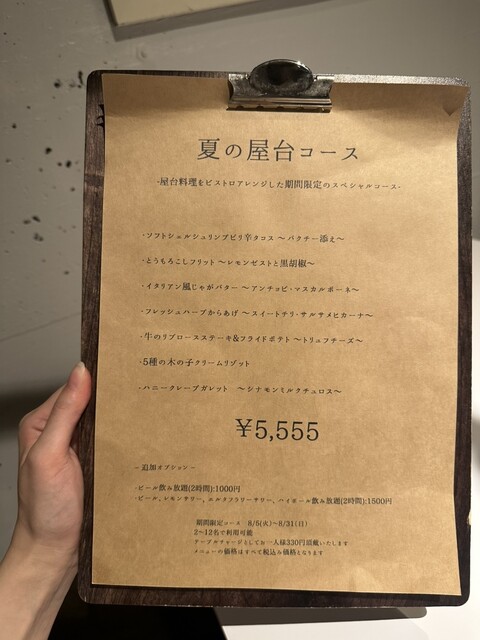 夏の屋台コース
·屋台料理をビストロアレンジした期間限定のスペシャルコース·
·ソフトシェルシュリンプピリ辛タコス 〜パクチー添え〜
·とうもろこしフリット 〜レモンゼストと黒胡椒〜
·イタリアン風じゃがバター 〜アンチョビ·マスカルポーネ〜
·フレッシュハーブからあげ 〜スイートチリ·サルサメヒカーナ〜
·牛のリブロースステーキ&フライドポテト 〜トリュフチーズ〜
·5種の木の子クリームリゾット
·ハニークレープガレット 〜シナモンミルクチュロス〜
¥5,555
– 追加オプション –
·ビール飲み放題(2時間):1000円
·ビール、レモンサワー、エルダフラワーサワー、ハイボール飲み放題(2時間):1500円
期間限定コース 8/5(火)〜8/31(日)
2〜12名で利用可能
テーブルチャージとしてお一人様330円頂戴いたします
メニューの価格はすべて税込み価格となります